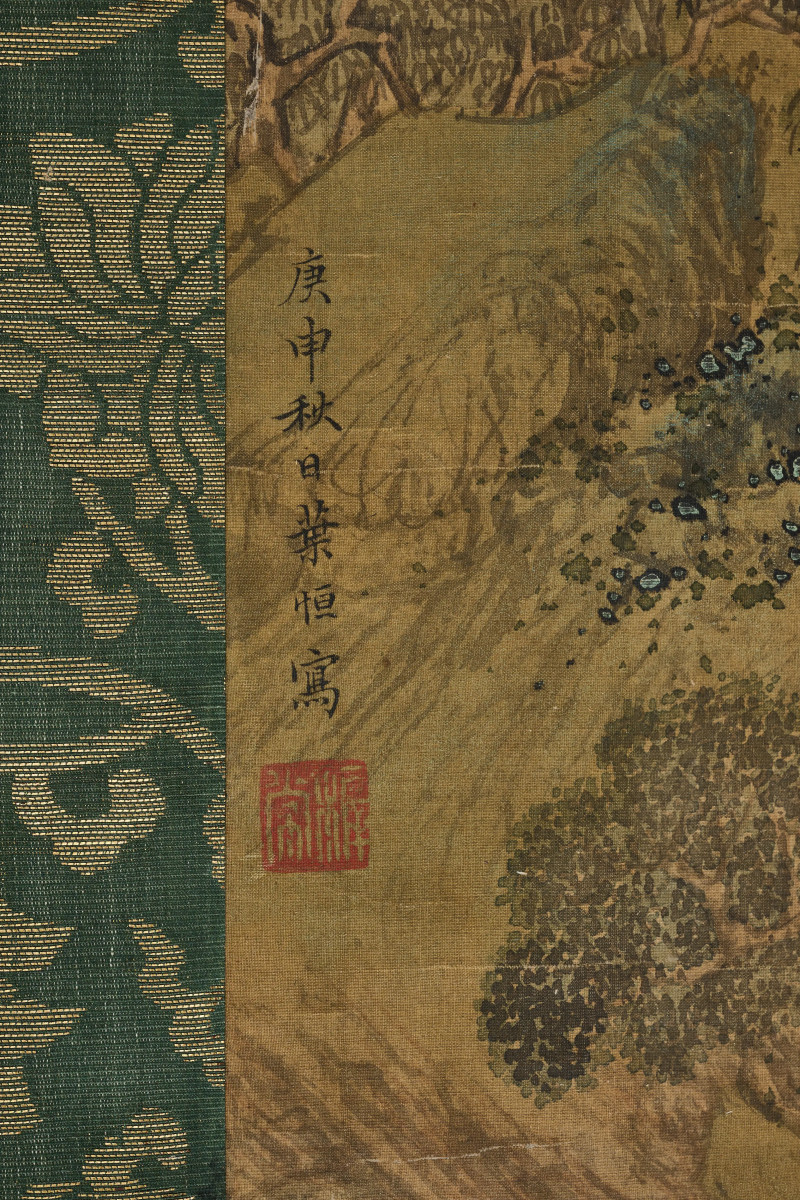 庚申秋日葉恒寫